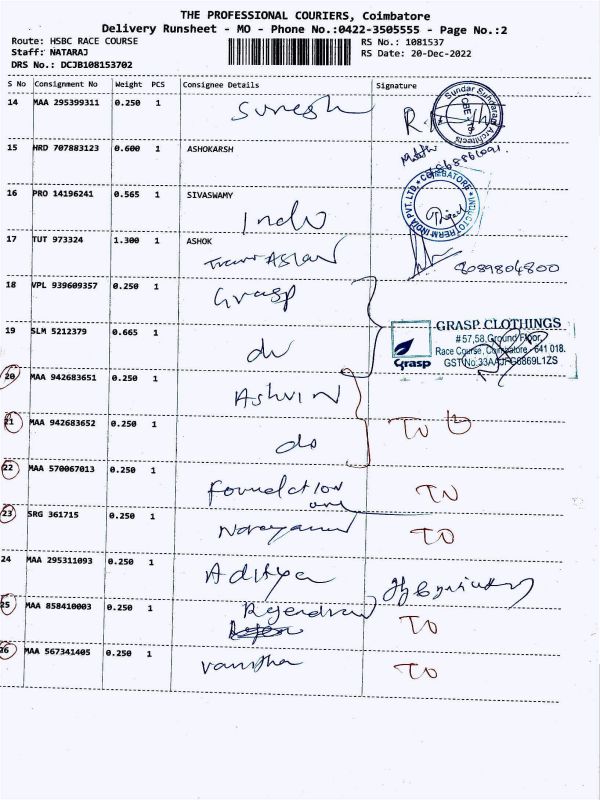 THE PROFESSIONAL COURIERS, Coimbatore
Delivery Runsheet - MO - Phone No.:0422-3505555 - Page No.:2
Route: HSBC RACE COURSE
Staff: NATARAJ
DRS No.: DCJB108153702
RS No.: 1081537
RS Date: 20-Dec-2022
S No Consignment No Weight PCS Consignee Details Signature
14 MAA 295399311 0.250 1 Suresh
Sundar Sundaram Architects
15 HRD 707883123 0.600 1 ASHOKARSH
16 PRO 14196241 0.565 1 SIVASWAMY
Indu
INDUCTOTHERM INDIA PVT. LTD. * COIMBATORE *
17 TUT 973324 1.300 1 ASHOK
8089804800
18 VPL 939609357 0.250 1 Grasp
GRASP CLOTHINGS
#57,58, Ground Floor,
Race Course, Coimbatore - 641 018.
Grasp
19 SLM 5212379 0.665 1 do
20 MAA 942683651 0.250 1 Ashvin
21 MAA 942683652 0.250 1 do TO
22 MAA 570067013 0.250 1 Foundation TO
23 SRG 361715 0.250 1 Narayanan TO
24 MAA 295311093 0.250 1 Aditya
25 MAA 858410003 0.250 1 Rajendran TO
26 MAA 567341405 0.250 1 Vanitha TO